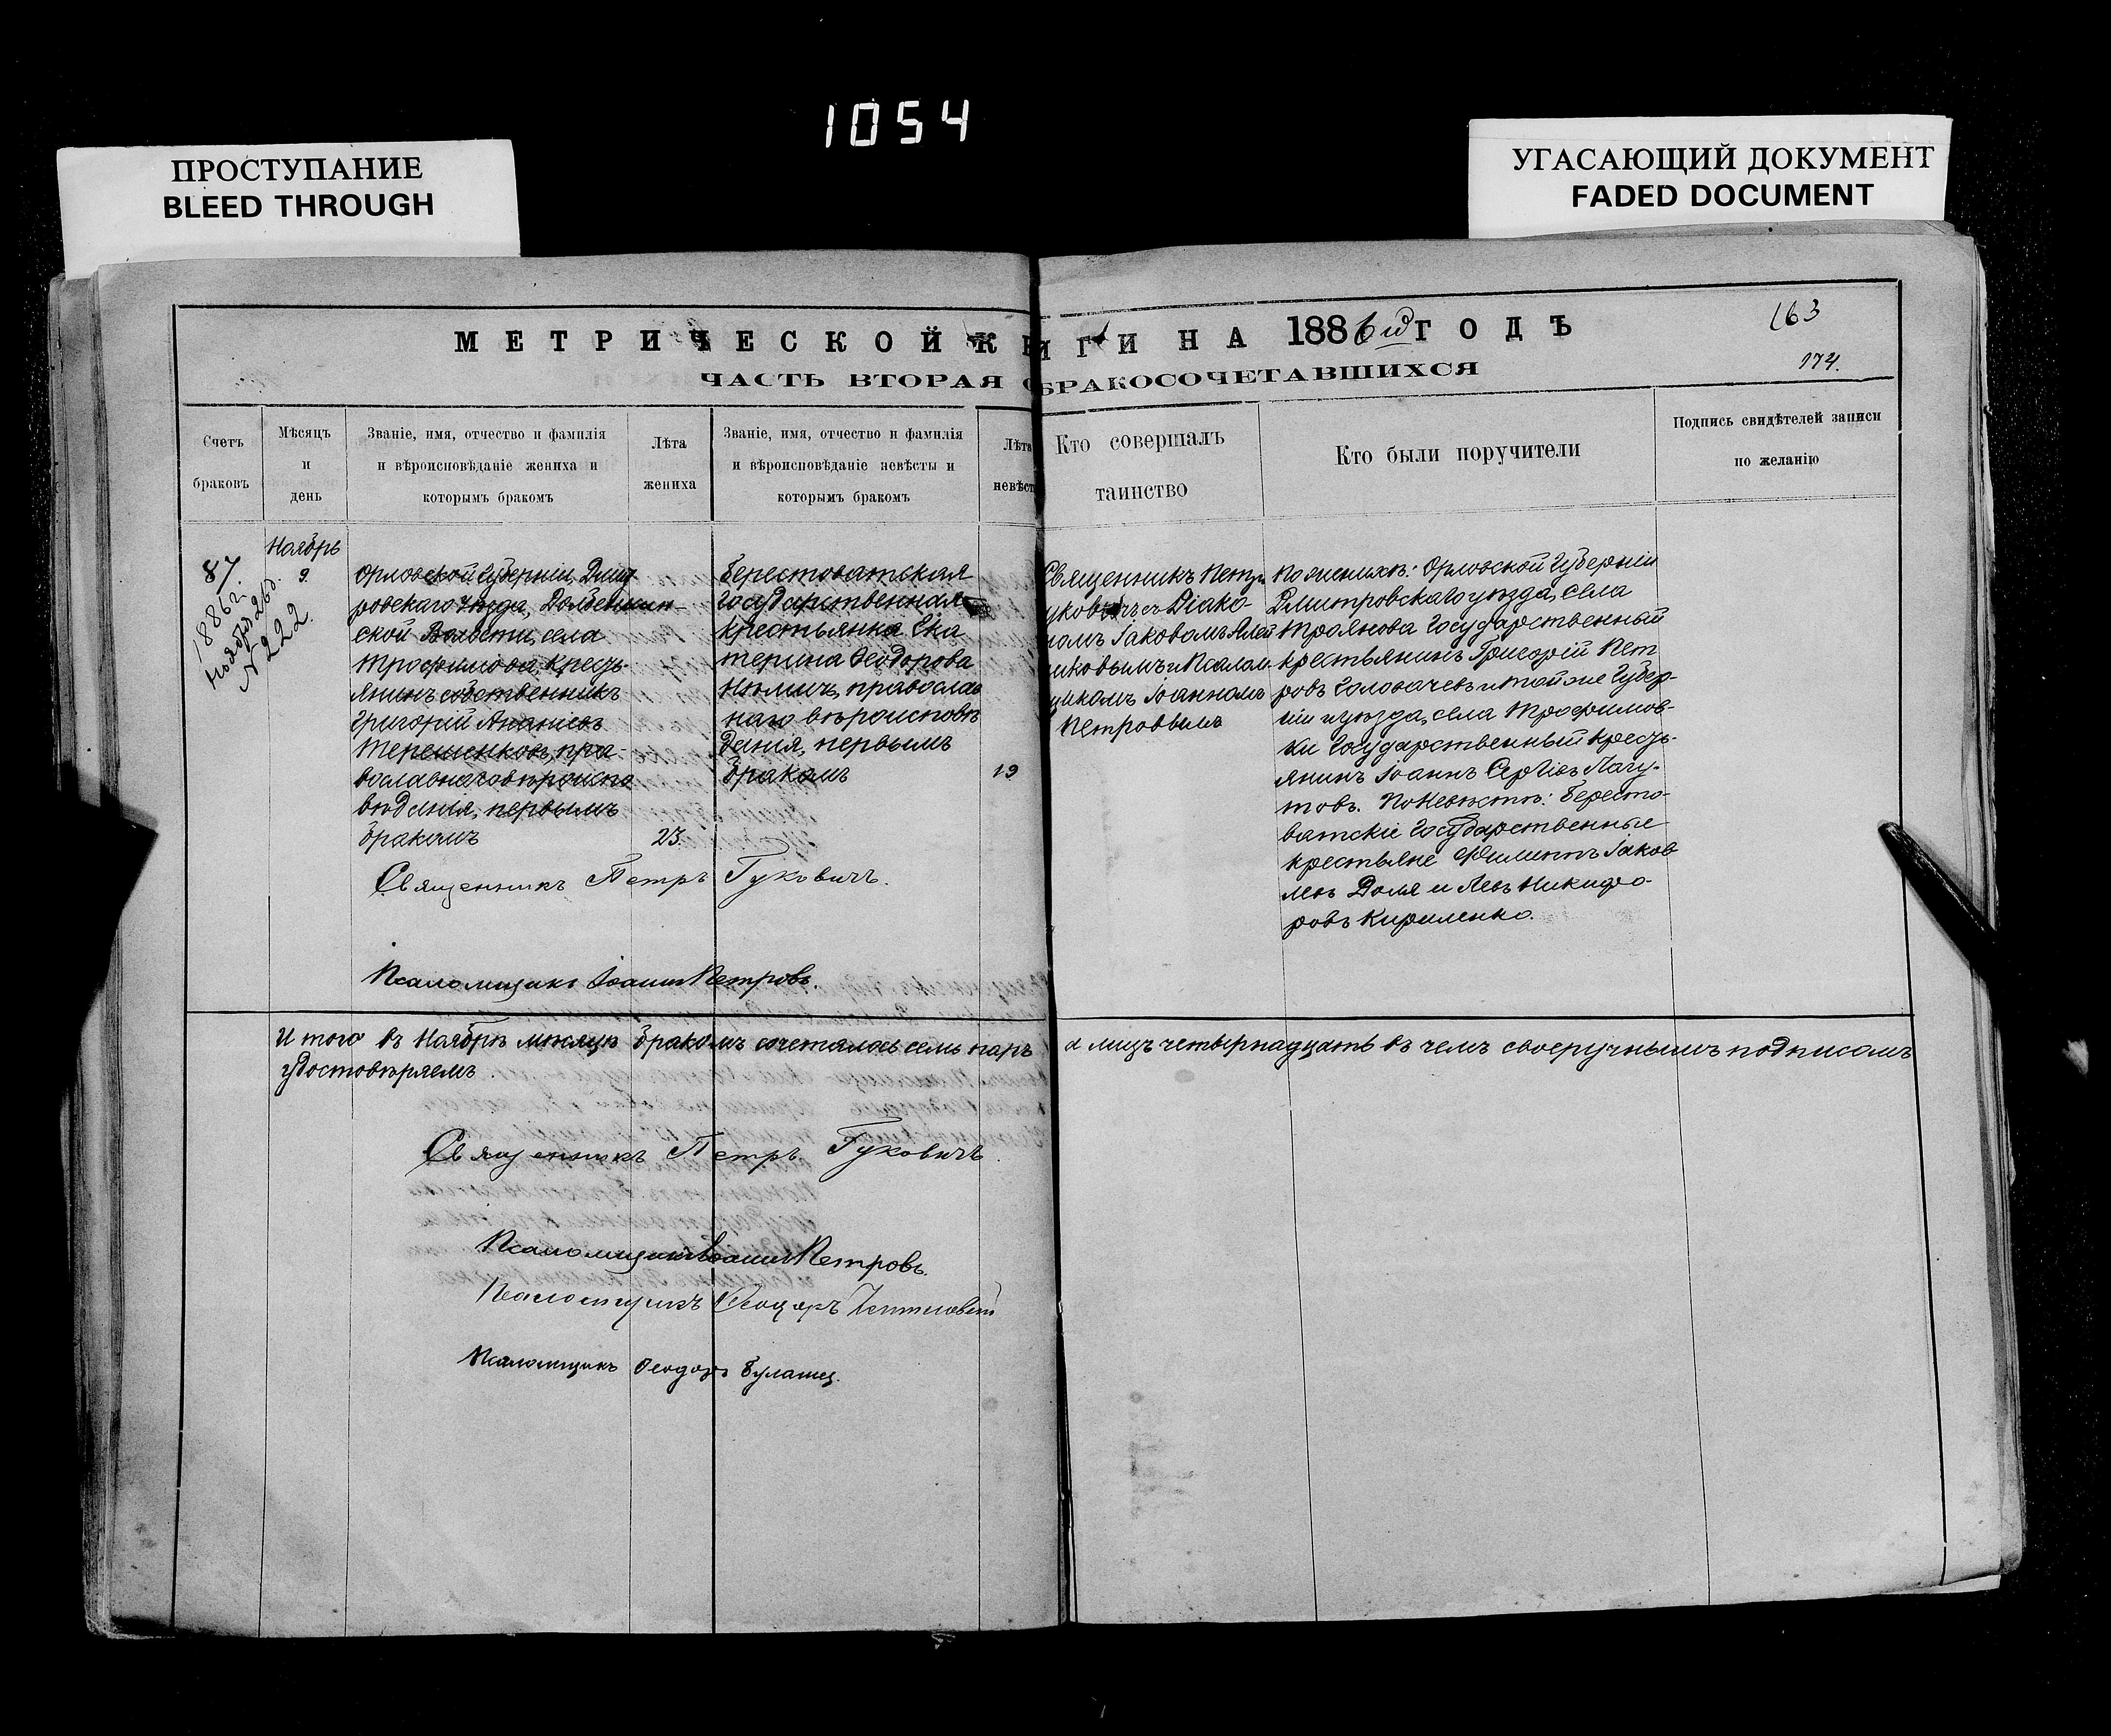 1054
ПРОСТУПАНИЕ
BLEED THROUGH
УГАСАЮЩИЙ ДОКУМЕНТ
FADED DOCUMENT
163
174.
МЕТРИЧЕСКОЙ КНИГИ НА 1886й ГОДЪ
ЧАСТЬ ВТОРАЯ О БРАКОСОЧЕТАВШИХСЯ
Счетъ
браковъ
Мѣсяцъ
и
день
Званіе, имя, отчество и фамилія
и вѣроисповѣданіе жениха и
которымъ бракомъ
Лѣта
жениха
Званіе, имя, отчество и фамилія
и вѣроисповѣданіе невѣсты и
которымъ бракомъ
Лѣта
невѣст
Кто совершалъ
таинство
Кто были поручители
Подпись свидѣтелей записи
по желанію
87
1886 г.
Ноября 26 д.
N 222.
Ноябрь
9.
Орловской Губерніи, Дмит
ровскаго уѣзда, Долбенкин-
ской Волости, села
Трофимова, кресть-
янинъ собственникъ
Григорій Ананіевъ
Терешенковъ, пра-
вославнаго вѣроиспо
вѣданія, первымъ
бракомъ
23.
Берестоватская
Государственная
крестьянка Ека
терина Ѳеодорова
православ
наго вѣроисповѣ
данія, первымъ
бракомъ
19
Священникъ Петръ
уковичъ съ Діако-
номъ Іаковомъ Алей
никовымъ и Псалом
щикомъ Іоанномъ
Петровымъ
По женихѣ: Орловской Губерніи
Дмитровскаго уѣзда, села
Троянова Государственный
крестьянинъ Григорій Пет
ровъ Головачевъ и той же Губер-
ніи и уѣзда, села Трофимов-
ки Государственный кресть-
янинъ Іоаннъ Сергіевъ Лагу-
товъ. По невѣстѣ: Бересто-
ватскіе Государственные
крестьяне Филиппъ Іаков
левъ Доля и Левъ Никифо-
ровъ Кириленко.
Священникъ Петръ Гуковичъ.
Псаломщикъ Іоаннъ Петровъ.
И того въ Ноябрѣ мѣсяцѣ бракомъ сочеталось семь паръ а лицъ четырнадцать въ чемъ своеручнымъ подписомъ
удостовѣряемъ.
Священникъ Петръ Гуковичъ.
Псаломщикъ Іоаннъ Петровъ.
Псаломщикъ Ѳеодоръ
Псаломщикъ Ѳеодоръ